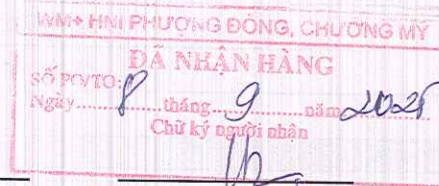 WM+ HNI PHƯƠNG ĐÔNG, CHƯƠNG MỸ
ĐÃ NHẬN HÀNG
SỐ PO/TO:
Ngày 8 tháng 9 năm 2025
Chữ ký người nhận